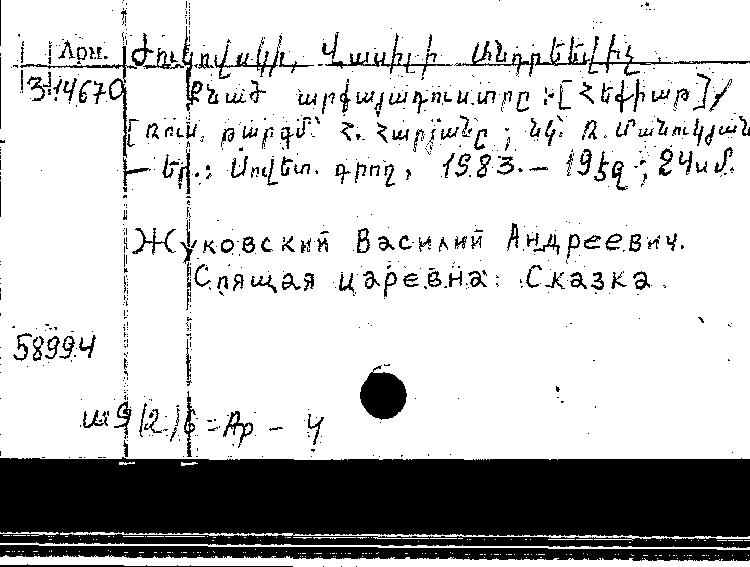 Արմ. Ժուկովսկի, Վասիլի Անդրեեվիչ
314670 Քնած արքայադուստրը : [Հեքիաթ] /
[Ռուս. թարգմ՝ Հ. Հարյանը ; նկ՝ Ռ. Մանուկյան
— Եր.: Սովետ. գրող, 1983. — 19 էջ ; 24 սմ.
Жуковский Василий Андреевич.
Спящая царевна: Сказка.
58994
և 9(2)6 = Ар – 4